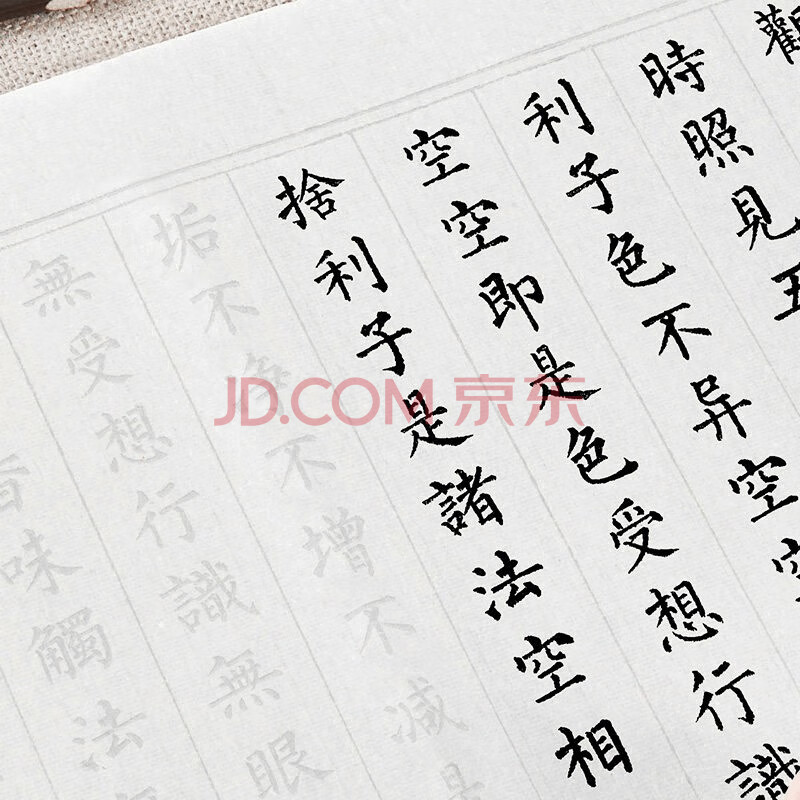 觀
時照見五
利子色不异空空
空空即是色受想行識
捨利子是諸法空相
垢不不增不減是
無受想行識無眼
香味觸法
JD.COM 京东